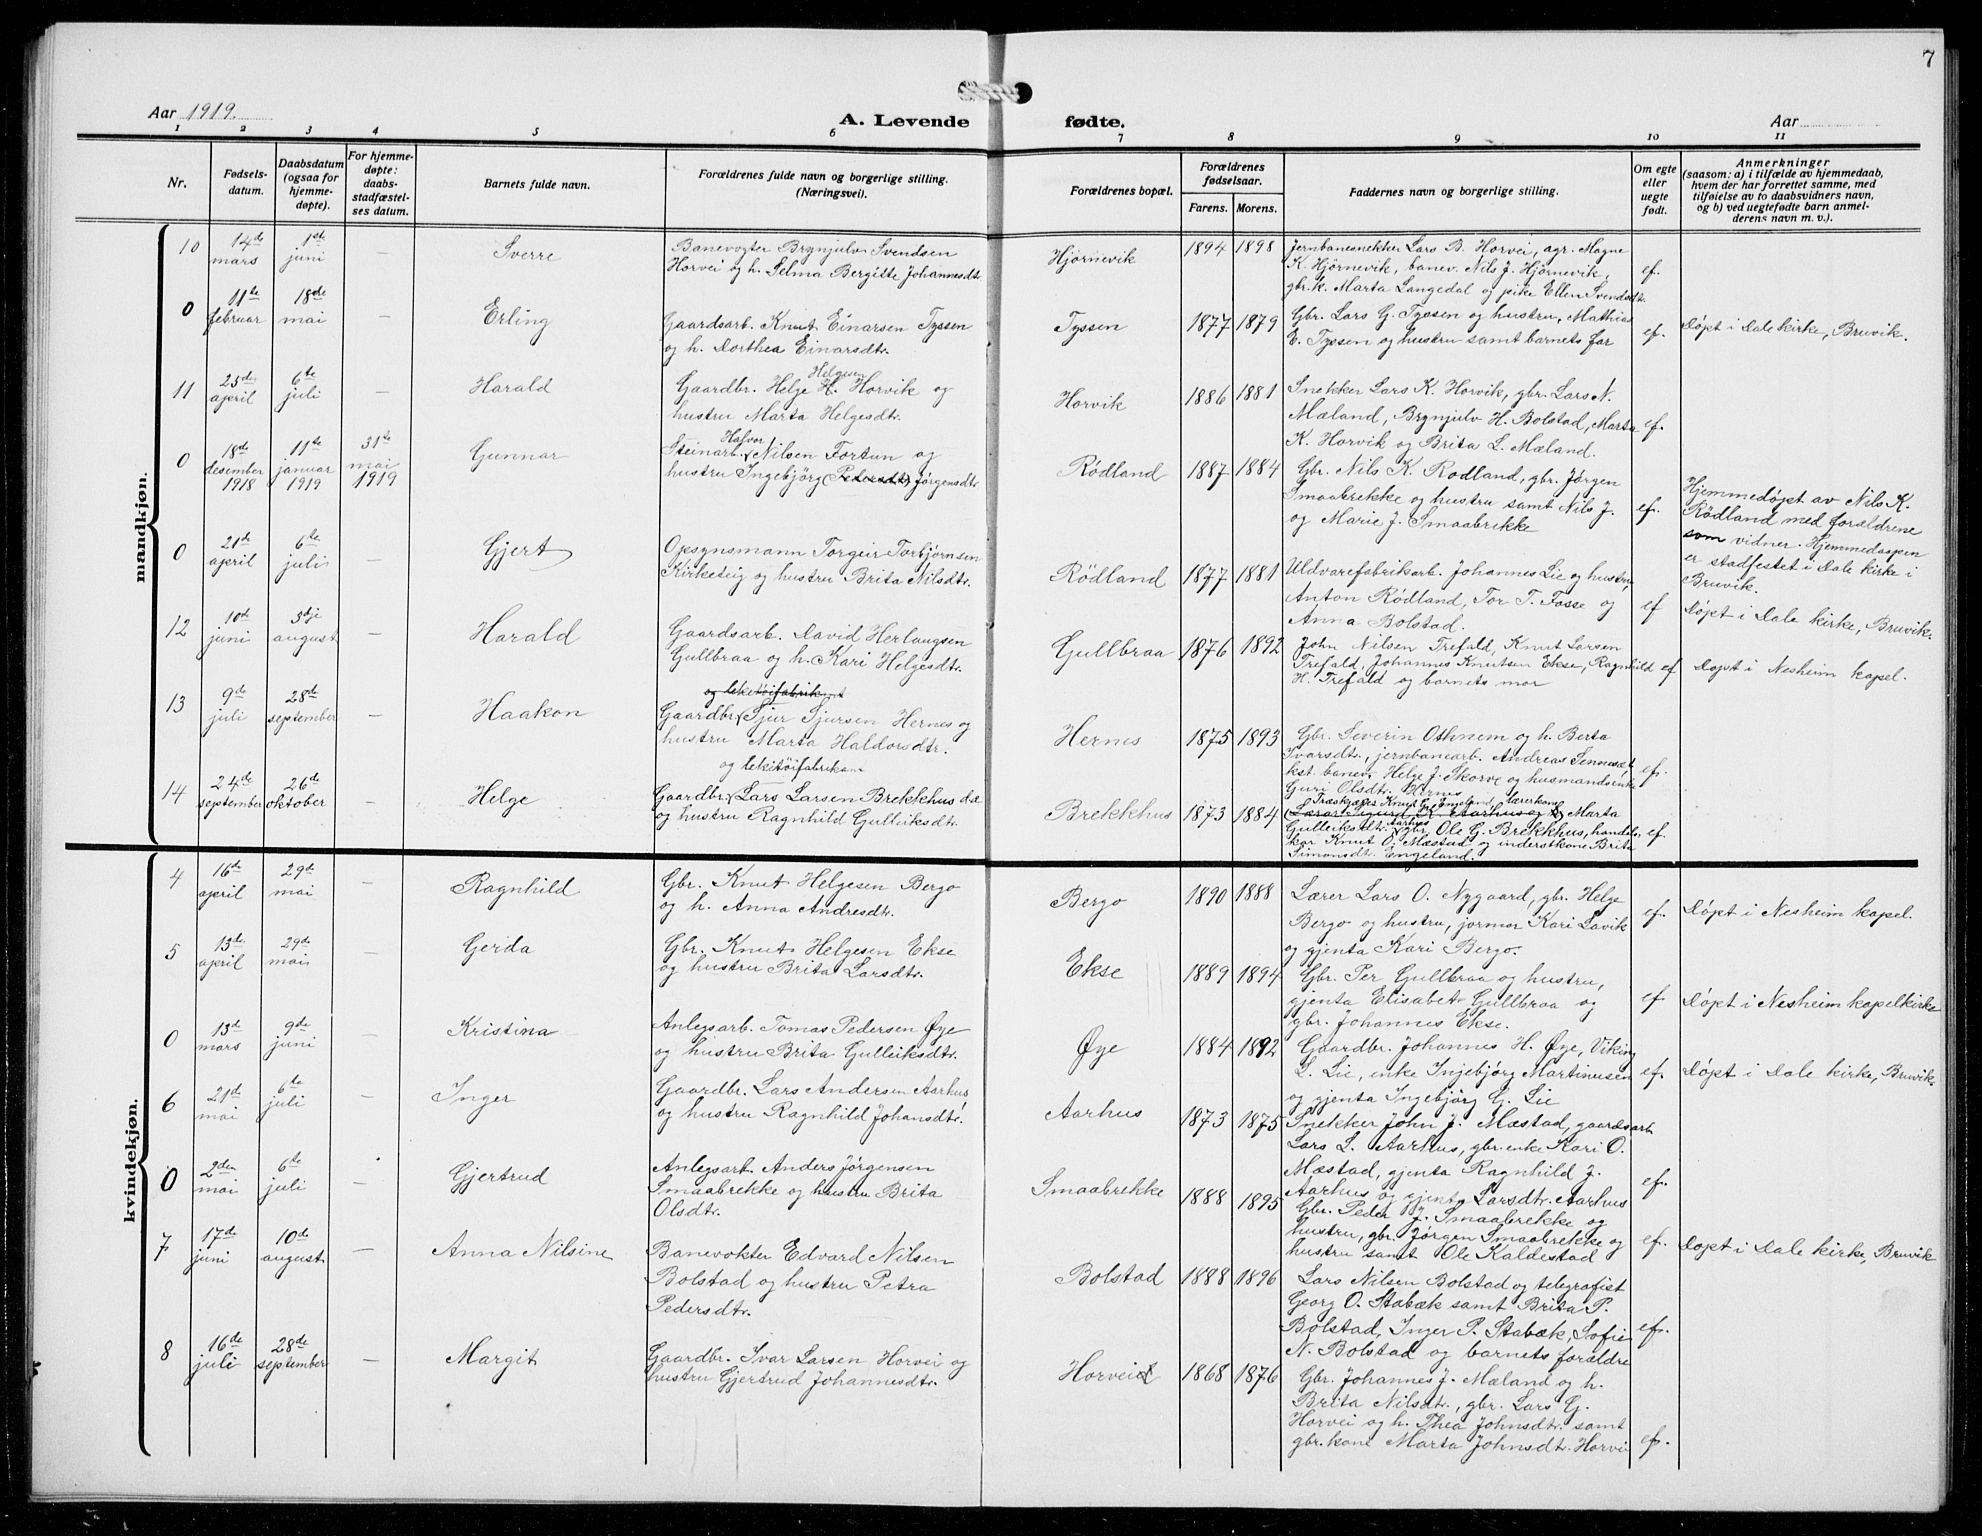 7
Aar 1919.
A. Levende fødte.
Aar
1 2 3 4 5 6 7 8 9 10 11
Nr.
Fødsels-
datum.
Daabsdatum
(ogsaa for
hjemme-
døpte).
For hjemme-
døpte:
daabs-
stadfæstel-
ses datum.
Barnets fulde navn.
Forældrenes fulde navn og borgerlige stilling.
(Næringsvei).
Forældrenes bopæl.
Forældrenes
fødselsaar.
Farens. Morens.
Faddernes navn og borgerlige stilling.
Om egte
eller
uegte
født.
Anmerkninger
(saasom: a) i tilfælde av hjemmedaab,
hvem der har forrettet samme, med
tilføielse av to daabsvidners navn,
og b) ved uegtefødte barn anmel-
derens navn m. v.).
mandkjøn.
10
14de
mars
1ste
juni
—
Sverre
Banevogter Brynjulv Svendsen
Horvei og h. Selma Bergitte Johannesdtr.
Hjørnevik
1894 1898
Jernbanesnekker Lars B. Horvei, agr. Magne
K. Hjörnevik, banev. Nils J. Hjörnevik,
gbr.k. Marta Langedal og pike Ellen Svendsdtr.
ef.
0
11te
februar
18de
mai
—
Erling
Gaardsarb. Knut Einarsen Tyssen
og h. Dorthea Einarsdtr.
Tyssen
1877 1879
Gbr. Lars G. Tyssen og hustru, Mathias
E. Tyssen og hustru samt barnets far
ef.
Døpt i Dale kirke, Bruvik.
11
25de
april
6te
juli
—
Harald
Helgesen
Gaardbr. Helge H. Horvik og
hustru Marta Helgesdtr.
Horvik
1886 1881
Snekker Lars K. Horvik, gbr. Lars N.
Mæland, Brynjulv H. Bolstad, Marta
K. Horvik og Brita L. Mæland.
ef.
0
18de
desember
1918
11te
januar
1919
31te
mai
1919
Gunnar
Halvor
Steinarb. Nilsen Fortun og
hustru Ingebjörg (Pedersdtr) Jørgensdtr
Rödland
1887 1884
Gbr. Nils K. Rödland, gbr. Jørgen
Smaabrekke og hustru samt Nils J.
og Marie J. Smaabrekke
ef.
Hjemmedøpt av Nils K.
Rödland med forældrene
som vidner. Hjemmedaapen
er stadfestet i Dale kirke i
Bruvik.
0
21de
april
6te
juli
—
Gjert
Opsynsmann Torgeir Torbjørnsen
Kirketeig og hustru Brita Nilsdtr.
Rödland
1877 1881
Uldvarefabrikarb. Johannes Lie og hustru,
Anton Rödland, Tor T. Fosse og
Anna Bolstad.
ef
Døpt i Dale kirke, Bruvik.
12
10de
juni
3dje
august
—
Harald
Gaardsarb. David Herlaugsen
Gullbraa og h. Kari Helgesdtr.
Gullbraa
1876 1892
John Nilsen Trefald, Knut Larsen
Trefald, Johannes Knutsen Ekse, Ragnhild
H. Trefald og barnets mor
ef
Døpt i Nesheim kapel.
13
9de
juli
28de
september
—
Haakon
og leketöifabrikant
Gaardbr. Sjur Sjursen Hernes og
hustru Marta Haldorsdtr.
Hernes
1875 1893
Gbr. Severin Othnem og h. Berta
Ivarsdtr., jernbanearb. Andreas Sennesæt
kst. banev. Helge J. Skorve og husmandsenke
Guri Olsdtr. Hernes
ef.
14
24de
september
26de
oktober
—
Helge
og leketöifabrikant
Gaardbr. Lars Larsen Brekkhus
og hustru Ragnhild Gulleiksdtr.
Brekkhus
1873 1884
Træskjærer Knut G. Emeland, lærerkone
(Lærer Sigurd K. Aarhus og) Marta
Gulleiksdtr. Aarhus, gbr. Ole G. Brekkhus, handels-
kar Knut O. Mæstad og inderstkone Brita
Simonsdtr. Engeland.
ef.
kvindekjøn.
4
16de
april
29de
mai
—
Ragnhild
Gbr. Knut Helgesen Bergo
og h. Anna Andresdtr.
Bergo
1890 1888
Lærer Lars O. Nygaard, gbr. Helge
Bergo og hustru, jormor Kari Lavik
og gjenta Kari Bergo.
ef.
Døpt i Nesheim kapel.
5
13de
april
29de
mai
—
Gerda
Gbr. Knut Helgesen Ekse
og hustru Brita Larsdtr.
Ekse
1889 1894
Gbr. Per Gullbraa og hustru,
gjenta Elisabet Gullbraa og
gbr. Johannes Ekse.
ef.
Døpt i Nesheim kapelkirke
0
13de
mars
9de
juni
—
Kristina
Anlegsarb. Tomas Pedersen Øye
og hustru Brita Gulleiksdtr.
Øye
1884 1892
Gaardbr. Johannes H. Øye, Viking
L. Lie, enke Ingebjörg Martinusen
og gjenta Ingebjörg G. Lie
ef.
Døpt i Dale kirke, Bruvik.
6
21de
mai
6te
juli
—
Inger
Gaardbr. Lars Andersen Aarhus
og hustru Ragnhild Johansdtr.
Aarhus
1873 1875
Snekker John J. Mæstad, gaardsarb.
Lars L. Aarhus, gbr.enke Kari O.
Mæstad, gjenta Ragnhild J.
Aarhus og gjenta Larsdtr. Aarhus
ef.
0
2den
mai
6te
juli
Gjertrud
Anlegsarb. Anders Jørgensen
Smaabrekke og hustru Brita
Olsdtr.
Smaabrekke
1888 1895
Gbr. Peder J. Smaabrekke og
hustru, gbr. Jørgen Smaabrekke og
hustru samt Ole Kaldestad
ef.
Døpt i Dale kirke, Bruvik
7
17de
juni
10de
august
—
Anna Nilsine
Banevokter Edvard Nilsen
Bolstad og hustru Petra
Pedersdtr.
Bolstad
1888 1896
Lars Nilsen Bolstad og telegrafist
Georg O. Stabæk samt Brita P.
Bolstad, Inger P. Stabæk, Sofie
N. Bolstad og barnets forældre
ef.
8
16de
juli
28de
september
—
Margit
Gaardbr. Ivar Larsen Horvei og
hustru Gjertrud Johannesdtr.
Horvei
1868 1876
Gbr. Johannes J. Mæland og h.
Brita Nilsdtr., gbr. Lars G.
Horvei og h. Thea Johnsdtr. samt
gbr.kone Marta Johnsdtr. Horvei
ef.